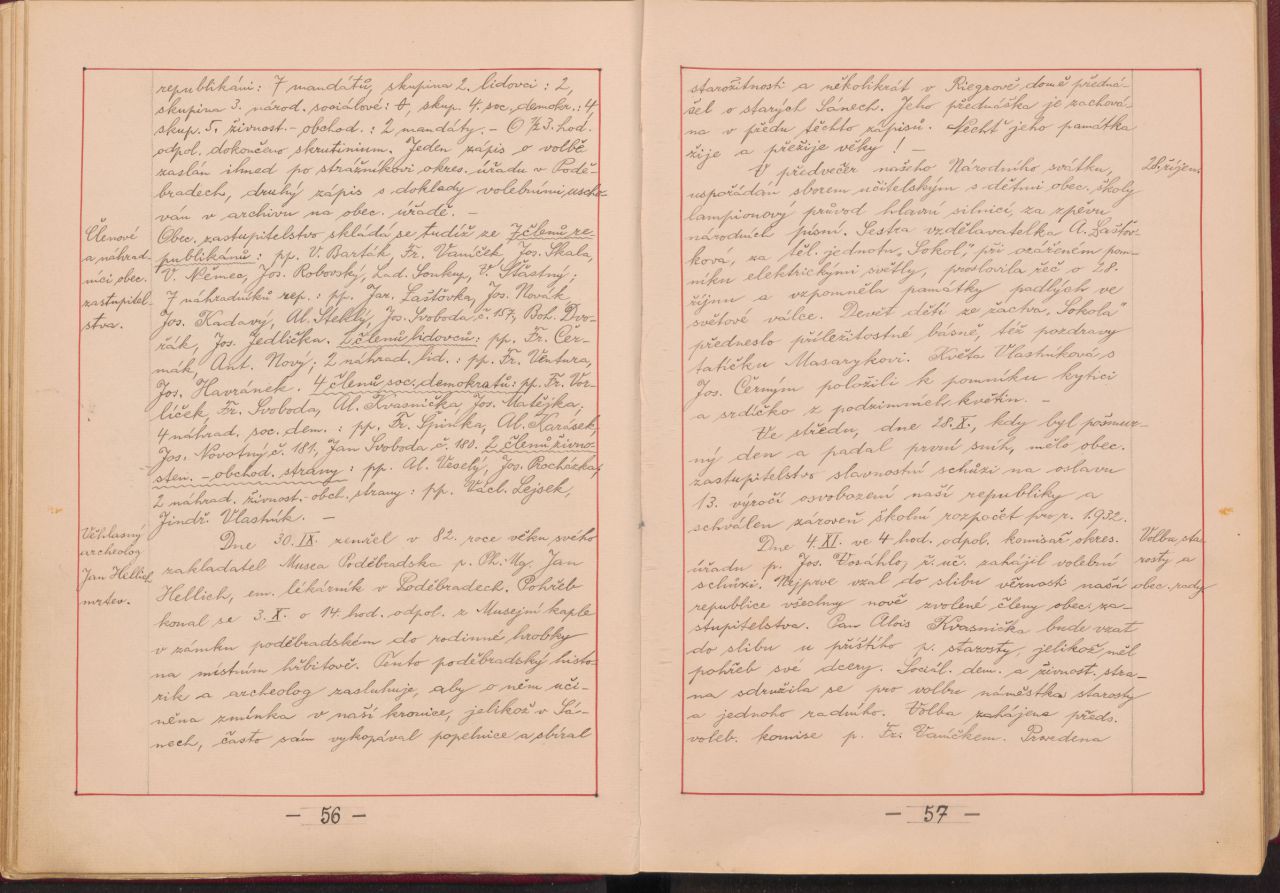 republikáni: 7 mandátů, skupina 2. lidovci: 2,
skupina 3. národ. sociálové: 0, skup. 4. soc. demokr.: 4
skup. 5. živnost.-obchod.: 2 mandáty. - O ½3. hod.
odpol. dokončeno skrutinium. Jeden zápis o volbě
zaslán ihned po strážníkovi okres. úřadu v Podě-
bradech, druhý zápis s doklady volebními uscho-
ván v archivu na obec. úřadě. -
Členové
a náhrad-
níci obec.
zastupitel-
stva.
Obec. zastupitelstvo skládá se tudíž ze 7 členů re-
publikánů: pp. V. Barták, Fr. Vaníček, Jos. Skala,
V. Němec, Jos. Robovský, Lad. Soukup, V. Šťastný;
7 náhradníků rep.: pp. Jar. Lášťovka, Jos. Novák,
Jos. Kadavý, Al. Steklý, Jos. Svoboda č. 157, Boh. Dvo-
řák, Jos. Jedlička. 2 členů lidovců: pp. Fr. Čer-
mák, Ant. Nový; 2 náhrad. lid.: pp. Fr. Ventura,
Jos. Havránek. 4 členů soc. demokratů: pp. Fr. Vor-
líček, Fr. Svoboda, Al. Kvasnička, Jos. Matějka,
4 náhrad. soc. dem.: pp. Fr. Špinka, Al. Karásek,
Jos. Novotný č. 181, Jan Svoboda č. 180. 2 členů živno-
sten.-obchod. strany: pp. Al. Veselý, Jos. Procházka,
2 náhrad. živnost.-obch. strany: pp. Václ. Lejsek,
Jindř. Vlastník. -
Věhlasný
archeolog
Jan Hellich
mrtev.
Dne 30. IX. zemřel v 82. roce věku svého
zakladatel Musea Poděbradska p. Ph. Mg. Jan
Hellich, em. lékárník v Poděbradech. Pohřeb
konal se 3. X. o 14. hod. odpol. z Musejní kaple
v zámku poděbradském do rodinné hrobky
na místním hřbitově. Tento poděbradský histo-
rik a archeolog zasluhuje, aby o něm uči-
něna zmínka v naší kronice, jelikož v Sá-
nech, často sám vykopával popelnice a sbíral
- 56 -
starožitnosti a několikrát v Riegrově domě předná-
šel o starých Sánech. Jeho přednáška je zachová-
na v předu těchto zápisů. Nechť jeho památka
žije a přežije věky! -
28. říjen.
V předvečer našeho Národního svátku,
uspořádán sborem učitelským s dětmi obec. školy
lampionový průvod hlavní silnicí, za zpěvu
národních písní. Sestra vzdělavatelka A. Lášťov-
ková, za těl. jednotu "Sokol", při ozářeném pom-
níku elektrickými světly, proslovila řeč o 28.
říjnu a vzpomněla památky padlých ve
světové válce. Devět dětí ze žactva "Sokola"
předneslo příležitostné básně, též pozdravy
tatíčku Masarykovi. Květa Vlastníková s
Jos. Černým položili k pomníku kytici
a srdíčko z podzimních květin. -
Ve středu, dne 28. X., kdy byl pošmur-
ný den a padal první sníh, mělo obec.
zastupitelstvo slavnostní schůzi na oslavu
13. výročí osvobození naší republiky a
schválen zároveň školní rozpočet pro r. 1932.
Volba sta-
rosty a
obec. rady
Dne 4. XI. ve 4 hod. odpol. komisař okres.
úřadu p. Jos. Dosáhlo, ř. úč. zahájil volební
schůzi. Nejprve vzal do slibu věrnosti naší
republice všechny nově zvolené členy obec. za-
stupitelstva. Pan Alois Kvasnička bude vzat
do slibu u příštího p. starosty, jelikož měl
pohřeb své dcery. Sociál. dem. a živnost. stra-
na sdružila se pro volbu náměstka starosty
a jednoho radního. Volba zahájena předs.
voleb. komise p. Fr. Vaníčkem. Provedena
- 57 -